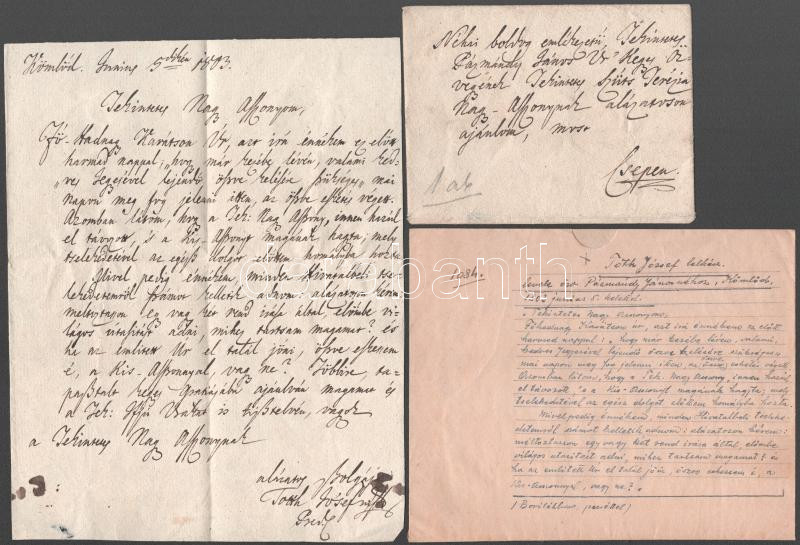 Kömlőd. Junius 5dikén 1813.
Tekintetes Nagy Aszszonyom,
Fő-Hadnagy Karátson Úr, azt írá énnékem ez előtt
harmad nappal; „hogy már kezibe lévén, valami ked-
„ves Jegyesével lejendő öszve kelésére szükséges mai
napon meg fog jelenni itten, az öszve esketés végett.
Azomban látom, hogy a Tek: Nagy Aszszony, innen hazúl
el távozott, 's a Kis-Aszszonyt magának hagyta; mely
tselekedetével az egész dolgot előttem homályba hozta.
Mivel pedig énnékem, minden Hivatalbéli tse-
lekedetemről számot kelletik adnom, alázatosan kérem
méltoztasson egy vagy két rend írása által, előmbe vi-
lágos utasítást adni, mihez tartsam magamat? és
ha az említett Úr el talál jőni, öszve eskessem
é, a Kis-Aszszonyal, vagy ne? Többire, ta-
pasztalt kegyes Gratiájába ajánlván magamat és
a Tek: Ifjú Urakat is tisztelvén, vagyok
a Tekintetes Nagy Aszszonynak
alázatos szolgája
Tóth Jósef mk
Préd.
Néhai boldog emlékezetű, Tekintetes
Pázmándy János Úr kegyes Öz-
vegyének Tekintetes Szüts Terézia
Nagy-Aszszonynak alázatoson
ajánlom, most
Csepen.
1 db
+ Tóth József lelkész
1084.
levele özv Pázmándy Jánosnéhoz, Kömlőd,
junius 5. kelettel.
„Tekintetes Nagy Asszonyom.
Főhadnagy Karátson úr, azt írá énnékem ez előtt
harmad nappal: hogy már kezébe lévén, valami,
kedves Jegyesével lejendő öszve kelésére szükséges
mai napon meg fog jelenni itten az öszve esketés végett.
Azomban látom, hogy a Tek. Nagy Asszony, innen hazúl
el távozott, 's a Kis-Asszonyt magának hagyta; mely
tselekedetével az egész dolgot előttem homályba hozta.
Mivel pedig énnékem, minden Hivatalbeli tseleke-
detemről számot kelletik adnom: alázatosan kérem:
méltoztasson egy vagy két rend írása által előmbe
világos utasítást adni, mihez tartsam magamat? és
ha az említett Úr el talál jőni, öszve eskessem é, a
Kis-Asszonyal, vagy ne?"
(Borítékban, pecséttel)
darabanth